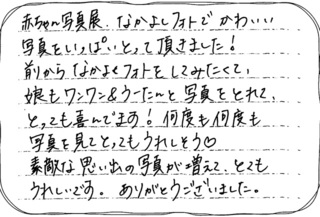 赤ちゃん写真展、なかよしフォトでかわいい
写真をいっぱいとって頂きました!
前からなかよしフォトをしてみたくて、
娘もワンワン&うーたんと写真をとれて、
とっても喜んでます!何度も何度も
写真を見てとってもうれしそう♡
素敵な思い出の写真が増えて、とても
うれしいです。ありがとうございました。